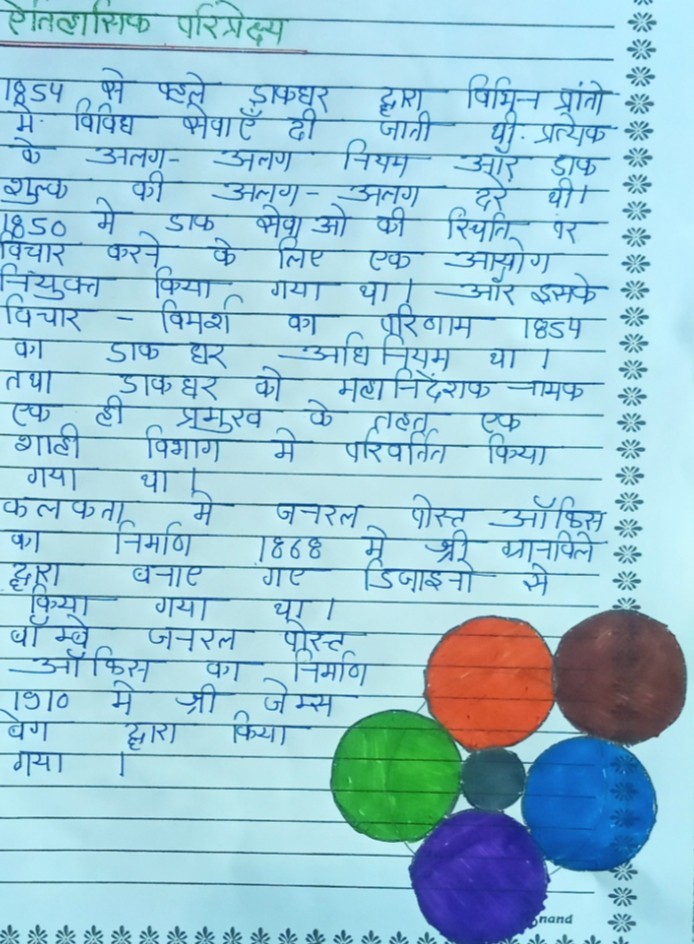 ऐतिहासिक परिप्रेक्ष्य
1854 से पहले डाकघर द्वारा विभिन्न प्रांतो
में विविध सेवाएँ दी जाती थी. प्रत्येक
के अलग- अलग नियम और डाक
शुल्क की अलग- अलग दरे थी।
1850 मे डाक सेवाओ की स्थिति पर
विचार करने के लिए एक आयोग
नियुक्त किया गया था। और इसके
विचार - विमर्श का परिणाम 1854
का डाक घर अधिनियम था।
तथा डाकघर को महानिदेशक नामक
एक ही प्रमुख के तहत एक
शाही विभाग मे परिवर्तित किया
गया था।
कलकता मे जनरल पोस्ट ऑफिस
का निर्माण 1868 मे श्री ग्रानविले
द्वारा बनाए गए डिजाइनो से
किया गया था।
बॉम्बे जनरल पोस्ट
ऑफिस का निर्माण
1910 मे श्री जेम्स
बेग द्वारा किया
गया ।